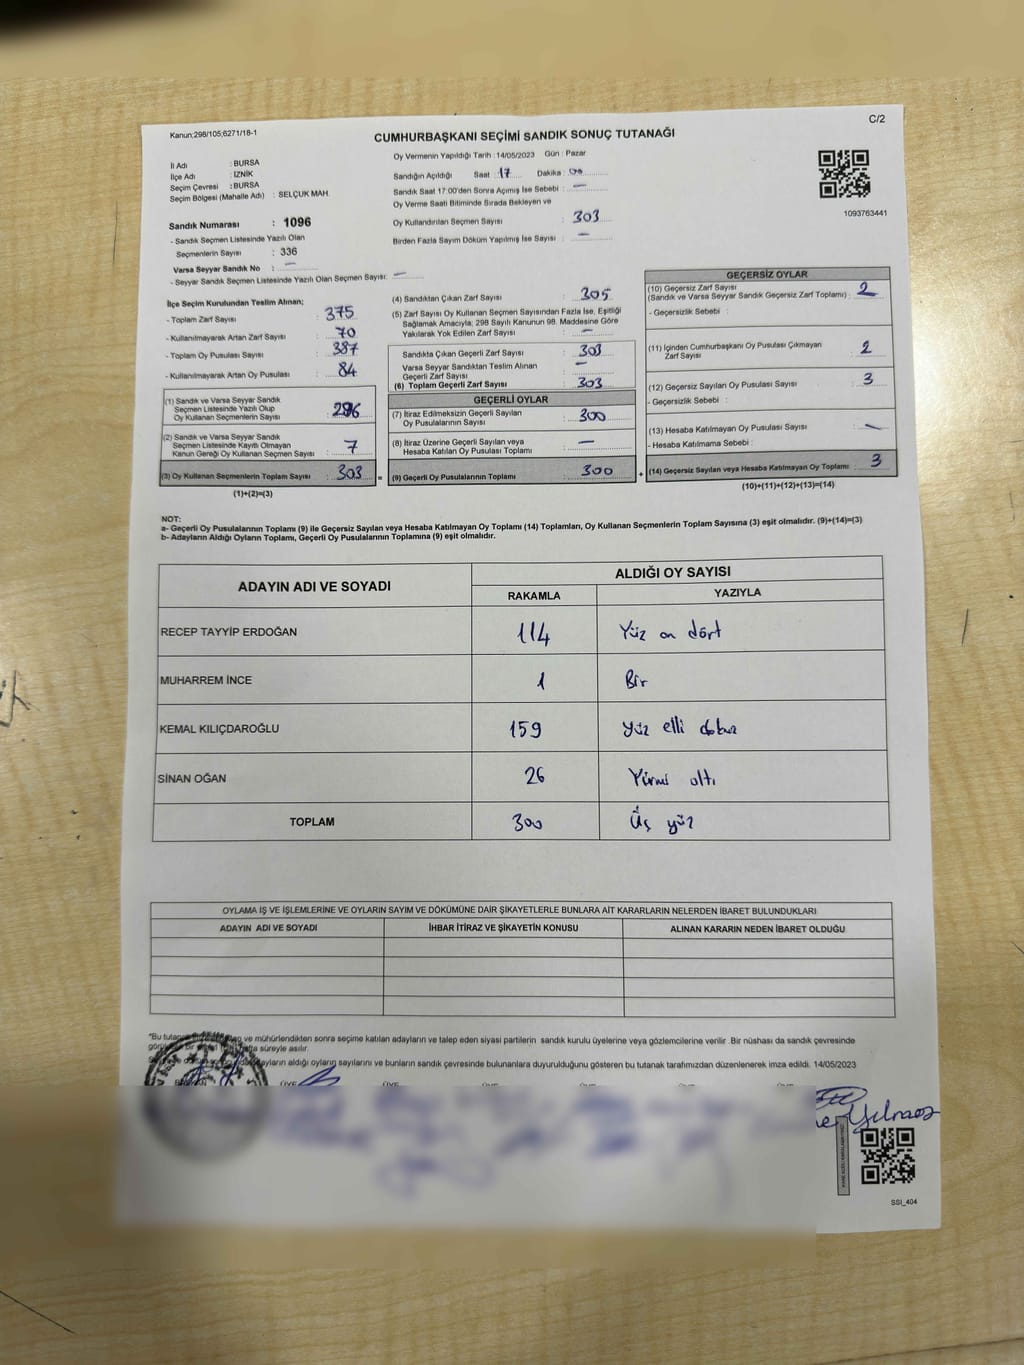 Kanun;298/105;6271/18-1
C/2
CUMHURBAŞKANI SEÇİMİ SANDIK SONUÇ TUTANAĞI
İl Adı : BURSA
İlçe Adı : İZNİK
Seçim Çevresi : BURSA
Seçim Bölgesi (Mahalle Adı) : SELÇUK MAH.
Oy Vermenin Yapıldığı Tarih : 14/05/2023 Gün : Pazar
Sandığın Açıldığı Saat : 17 Dakika : 00
Sandık Saat 17:00'den Sonra Açımış İse Sebebi : —
Oy Verme Saati Bitiminde Sırada Bekleyen ve
Oy Kullandırılan Seçmen Sayısı : 303
Birden Fazla Sayım Döküm Yapılmış İse Sayısı : —
1093763441
Sandık Numarası : 1096
- Sandık Seçmen Listesinde Yazılı Olan
Seçmenlerin Sayısı : 336
Varsa Seyyar Sandık No : —
- Seyyar Sandık Seçmen Listesinde Yazılı Olan Seçmen Sayısı: —
İlçe Seçim Kurulundan Teslim Alınan;
- Toplam Zarf Sayısı : 375
- Kullanılmayarak Artan Zarf Sayısı : 70
- Toplam Oy Pusulası Sayısı : 387
- Kullanılmayarak Artan Oy Pusulası : 84
(1) Sandık ve Varsa Seyyar Sandık
Seçmen Listesinde Yazılı Olup
Oy Kullanan Seçmenlerin Sayısı : 296
(2) Sandık ve Varsa Seyyar Sandık
Seçmen Listesinde Kayıtlı Olmayan
Kanun Gereği Oy Kullanan Seçmen Sayısı : 7
(3) Oy Kullanan Seçmenlerin Toplam Sayısı : 303
(1)+(2)=(3)
(4) Sandıktan Çıkan Zarf Sayısı : 305
(5) Zarf Sayısı Oy Kullanan Seçmen Sayısından Fazla İse, Eşitliği
Sağlamak Amacıyla; 298 Sayılı Kanunun 98. Maddesine Göre
Yakılarak Yok Edilen Zarf Sayısı : —
Sandıkta Çıkan Geçerli Zarf Sayısı : 303
Varsa Seyyar Sandıktan Teslim Alınan
Geçerli Zarf Sayısı : —
(6) Toplam Geçerli Zarf Sayısı : 303
GEÇERLİ OYLAR
(7) İtiraz Edilmeksizin Geçerli Sayılan
Oy Pusulalarının Sayısı : 300
(8) İtiraz Üzerine Geçerli Sayılan veya
Hesaba Katılan Oy Pusulası Toplamı : —
= (9) Geçerli Oy Pusulalarının Toplamı : 300
GEÇERSİZ OYLAR
(10) Geçersiz Zarf Sayısı
(Sandık ve Varsa Seyyar Sandık Geçersiz Zarf Toplamı) : 2
- Geçersizlik Sebebi :
(11) İçinden Cumhurbaşkanı Oy Pusulası Çıkmayan
Zarf Sayısı : 2
(12) Geçersiz Sayılan Oy Pusulası Sayısı : 3
- Geçersizlik Sebebi :
(13) Hesaba Katılmayan Oy Pusulası Sayısı : —
- Hesaba Katılmama Sebebi :
+ (14) Geçersiz Sayılan veya Hesaba Katılmayan Oy Toplamı : 3
(10)+(11)+(12)+(13)=(14)
NOT:
a- Geçerli Oy Pusulalarının Toplamı (9) ile Geçersiz Sayılan veya Hesaba Katılmayan Oy Toplamı (14) Toplamları, Oy Kullanan Seçmenlerin Toplam Sayısına (3) eşit olmalıdır. (9)+(14)=(3)
b- Adayların Aldığı Oyların Toplamı, Geçerli Oy Pusulalarının Toplamına (9) eşit olmalıdır.
ADAYIN ADI VE SOYADI
ALDIĞI OY SAYISI
RAKAMLA YAZIYLA
RECEP TAYYİP ERDOĞAN 114 Yüz on dört
MUHARREM İNCE 1 Bir
KEMAL KILIÇDAROĞLU 159 yüz elli dokuz
SİNAN OĞAN 26 Yirmi altı
TOPLAM 300 Üç yüz
OYLAMA İŞ VE İŞLEMLERİNE VE OYLARIN SAYIM VE DÖKÜMÜNE DAİR ŞİKAYETLERLE BUNLARA AİT KARARLARIN NELERDEN İBARET BULUNDUKLARI
ADAYIN ADI VE SOYADI İHBAR İTİRAZ VE ŞİKAYETİN KONUSU ALINAN KARARIN NEDEN İBARET OLDUĞU
"Bu ve mühürlendikten sonra seçime katılan adayların ve talep eden siyasi partilerin sandık kurulu üyelerine veya gözlemcilerine verilir .Bir nüshası da sandık çevresinde
süreyle asılır.
aldığı oyların sayılarını ve bunların sandık çevresinde bulunanlara duyurulduğunu gösteren bu tutanak tarafımızdan düzenlenerek imza edildi. 14/05/2023
Yılmaz
SSI_404